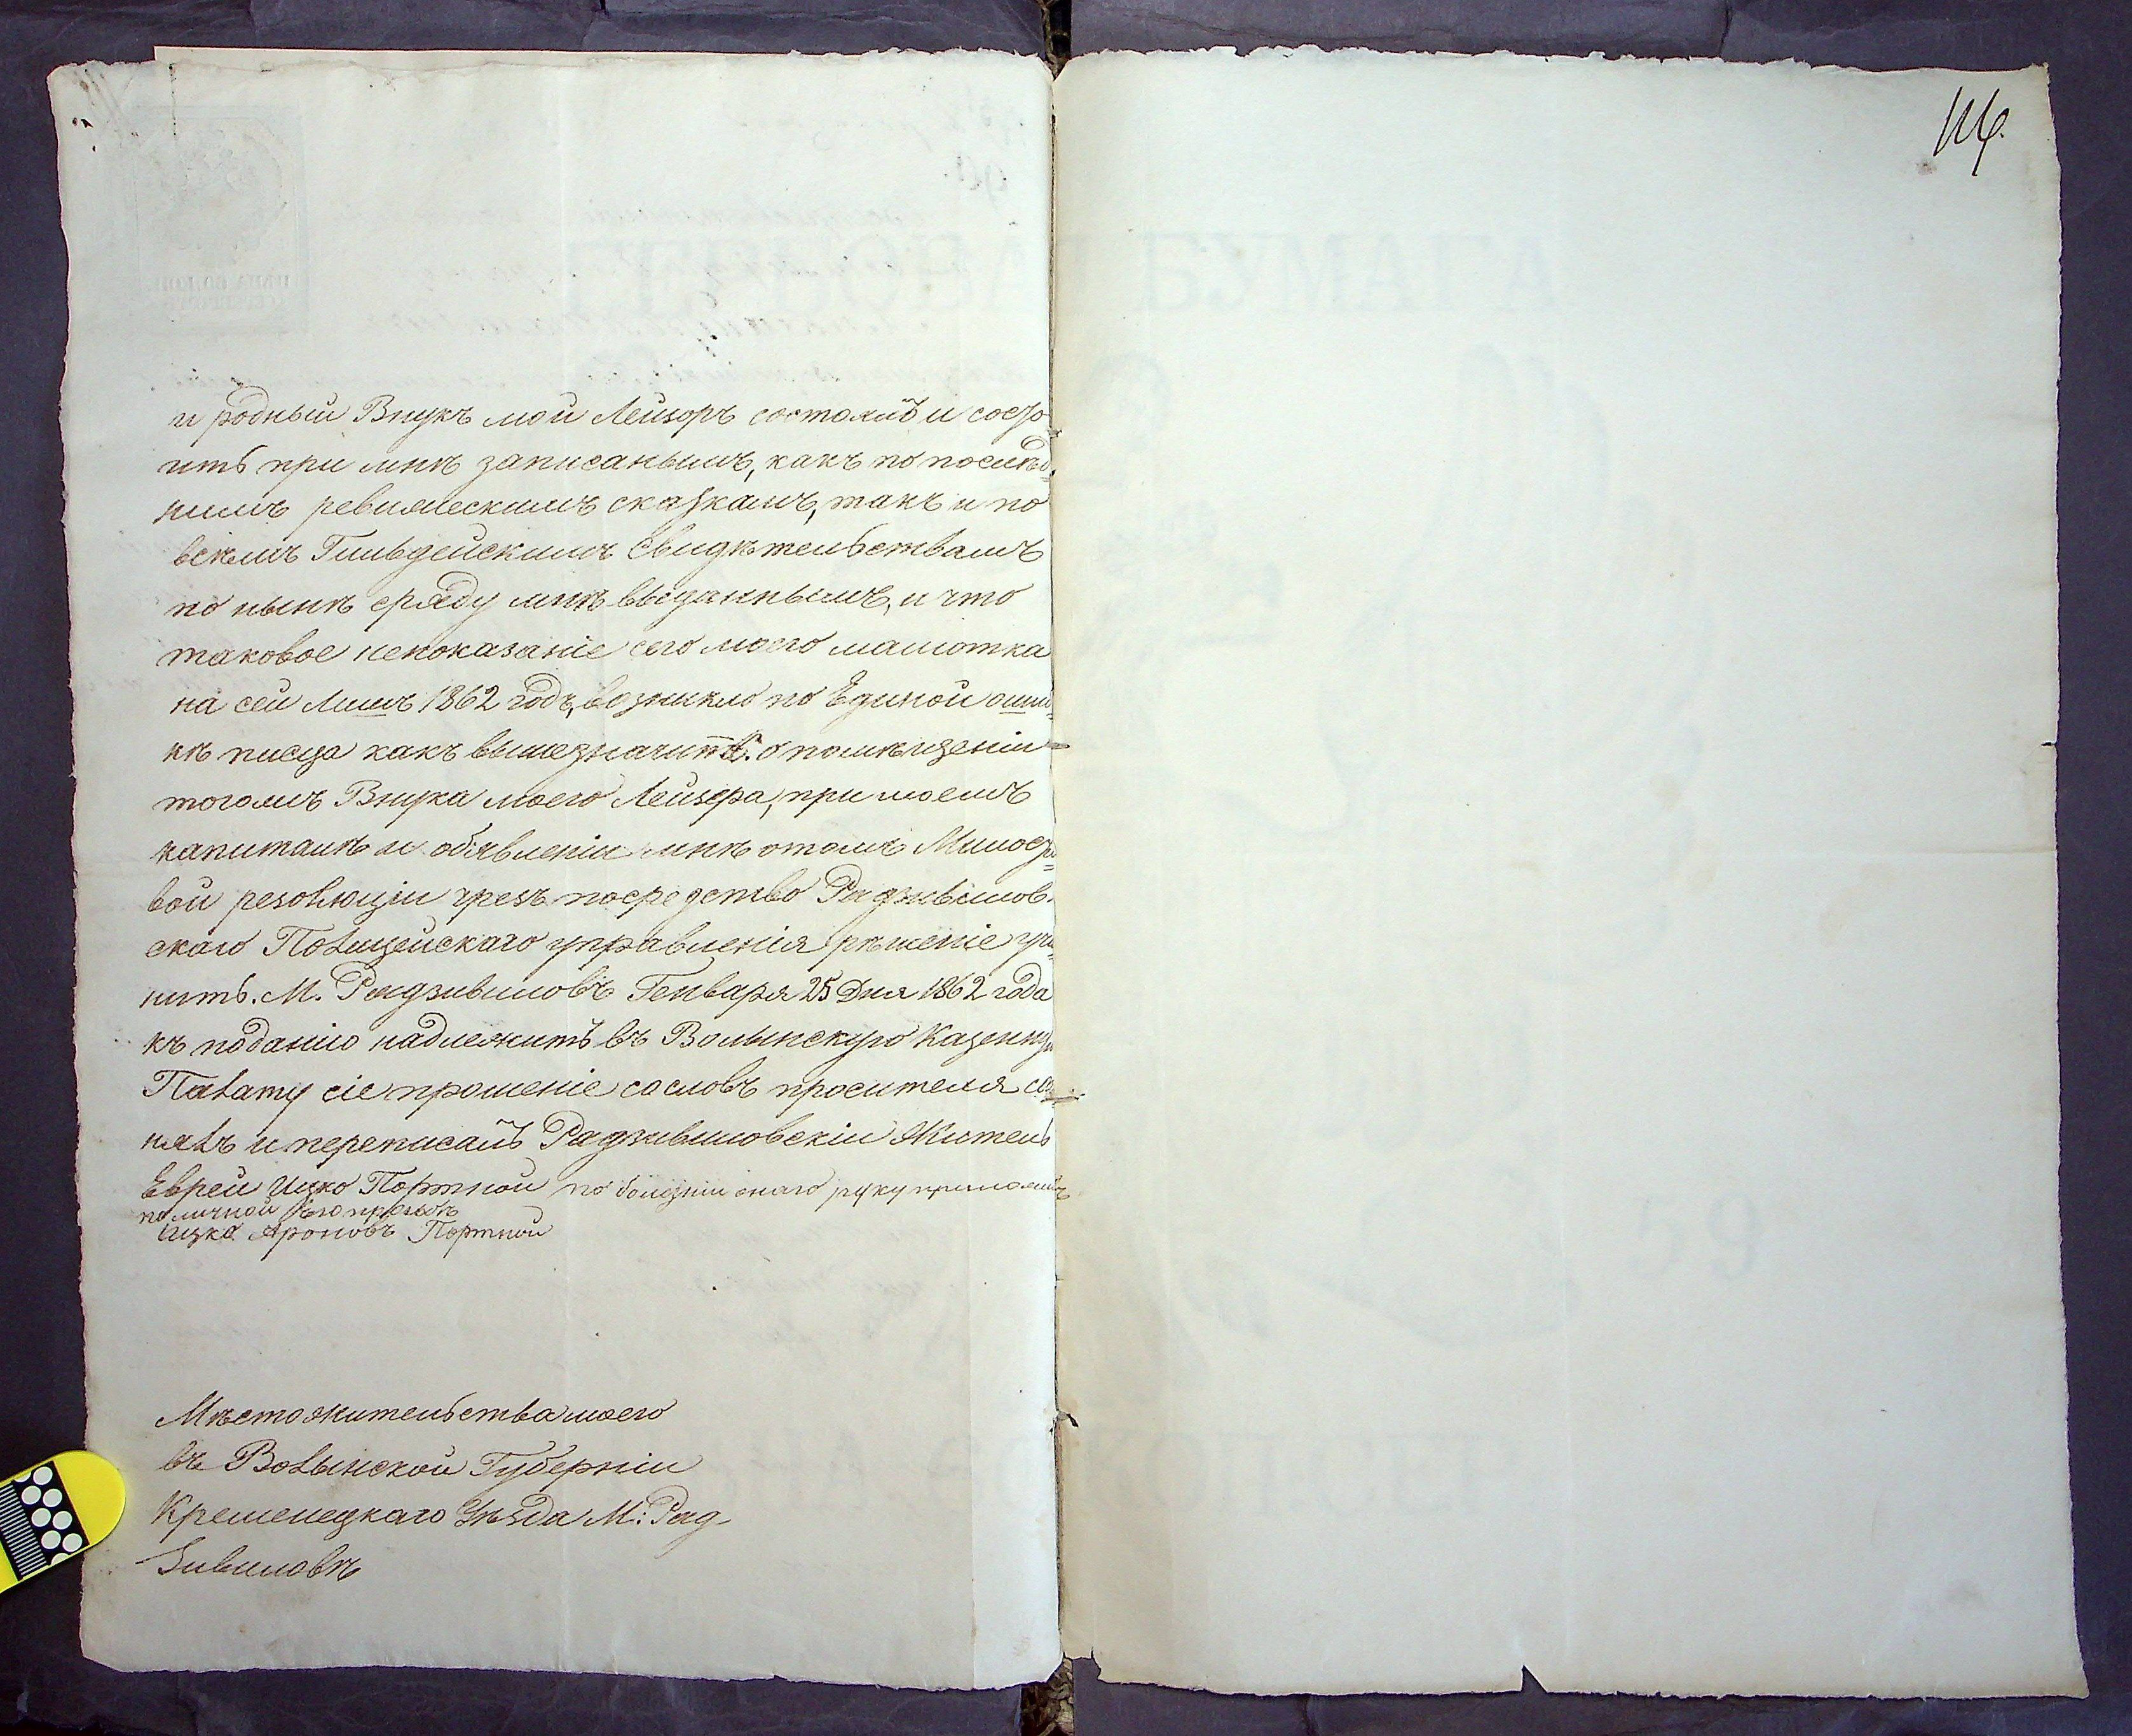 114.
и родный Внукъ мой Лейзоръ состоялъ и состо=
итъ при мнѣ записанымъ, какъ по послѣд=
нимъ ревизскимъ сказкамъ, такъ и по
всѣмъ Гильдейскимъ Свидѣтельствамъ
по нынѣ сряду мнѣ выданнымъ, и что
таковое непоказаніе сего моего малютка
на сей лишъ 1862 годъ, возникло по Единой ошиб=
кѣ писца какъ вышезначитъ. о помѣщеніи
тогожъ Внука моего Лейзера, при моемъ
капиталѣ и обявленіи мнѣ отомъ Милости=
вой резолюціи чрезъ посредство Радзивилов=
скаго Полицейскаго управленія рѣшеніе учи=
нить. М. Радзивиловъ Генваря 25 Дня 1862 года
къ поданію надлежитъ въ Волынскую Казенную
Палату сіе прошеніе сословъ просителя со=
нялъ и переписалъ Радзивиловскій Житель
Еврей Ицко Портной по болезни онаго руку приложилъ
поличной Его прозбѣ
Ицко Ароновъ Портной
Мѣсто жительства моего
въ Волынской Губерніи
Кременецкаго Уѣзда М: Рад
Зивиловѣ